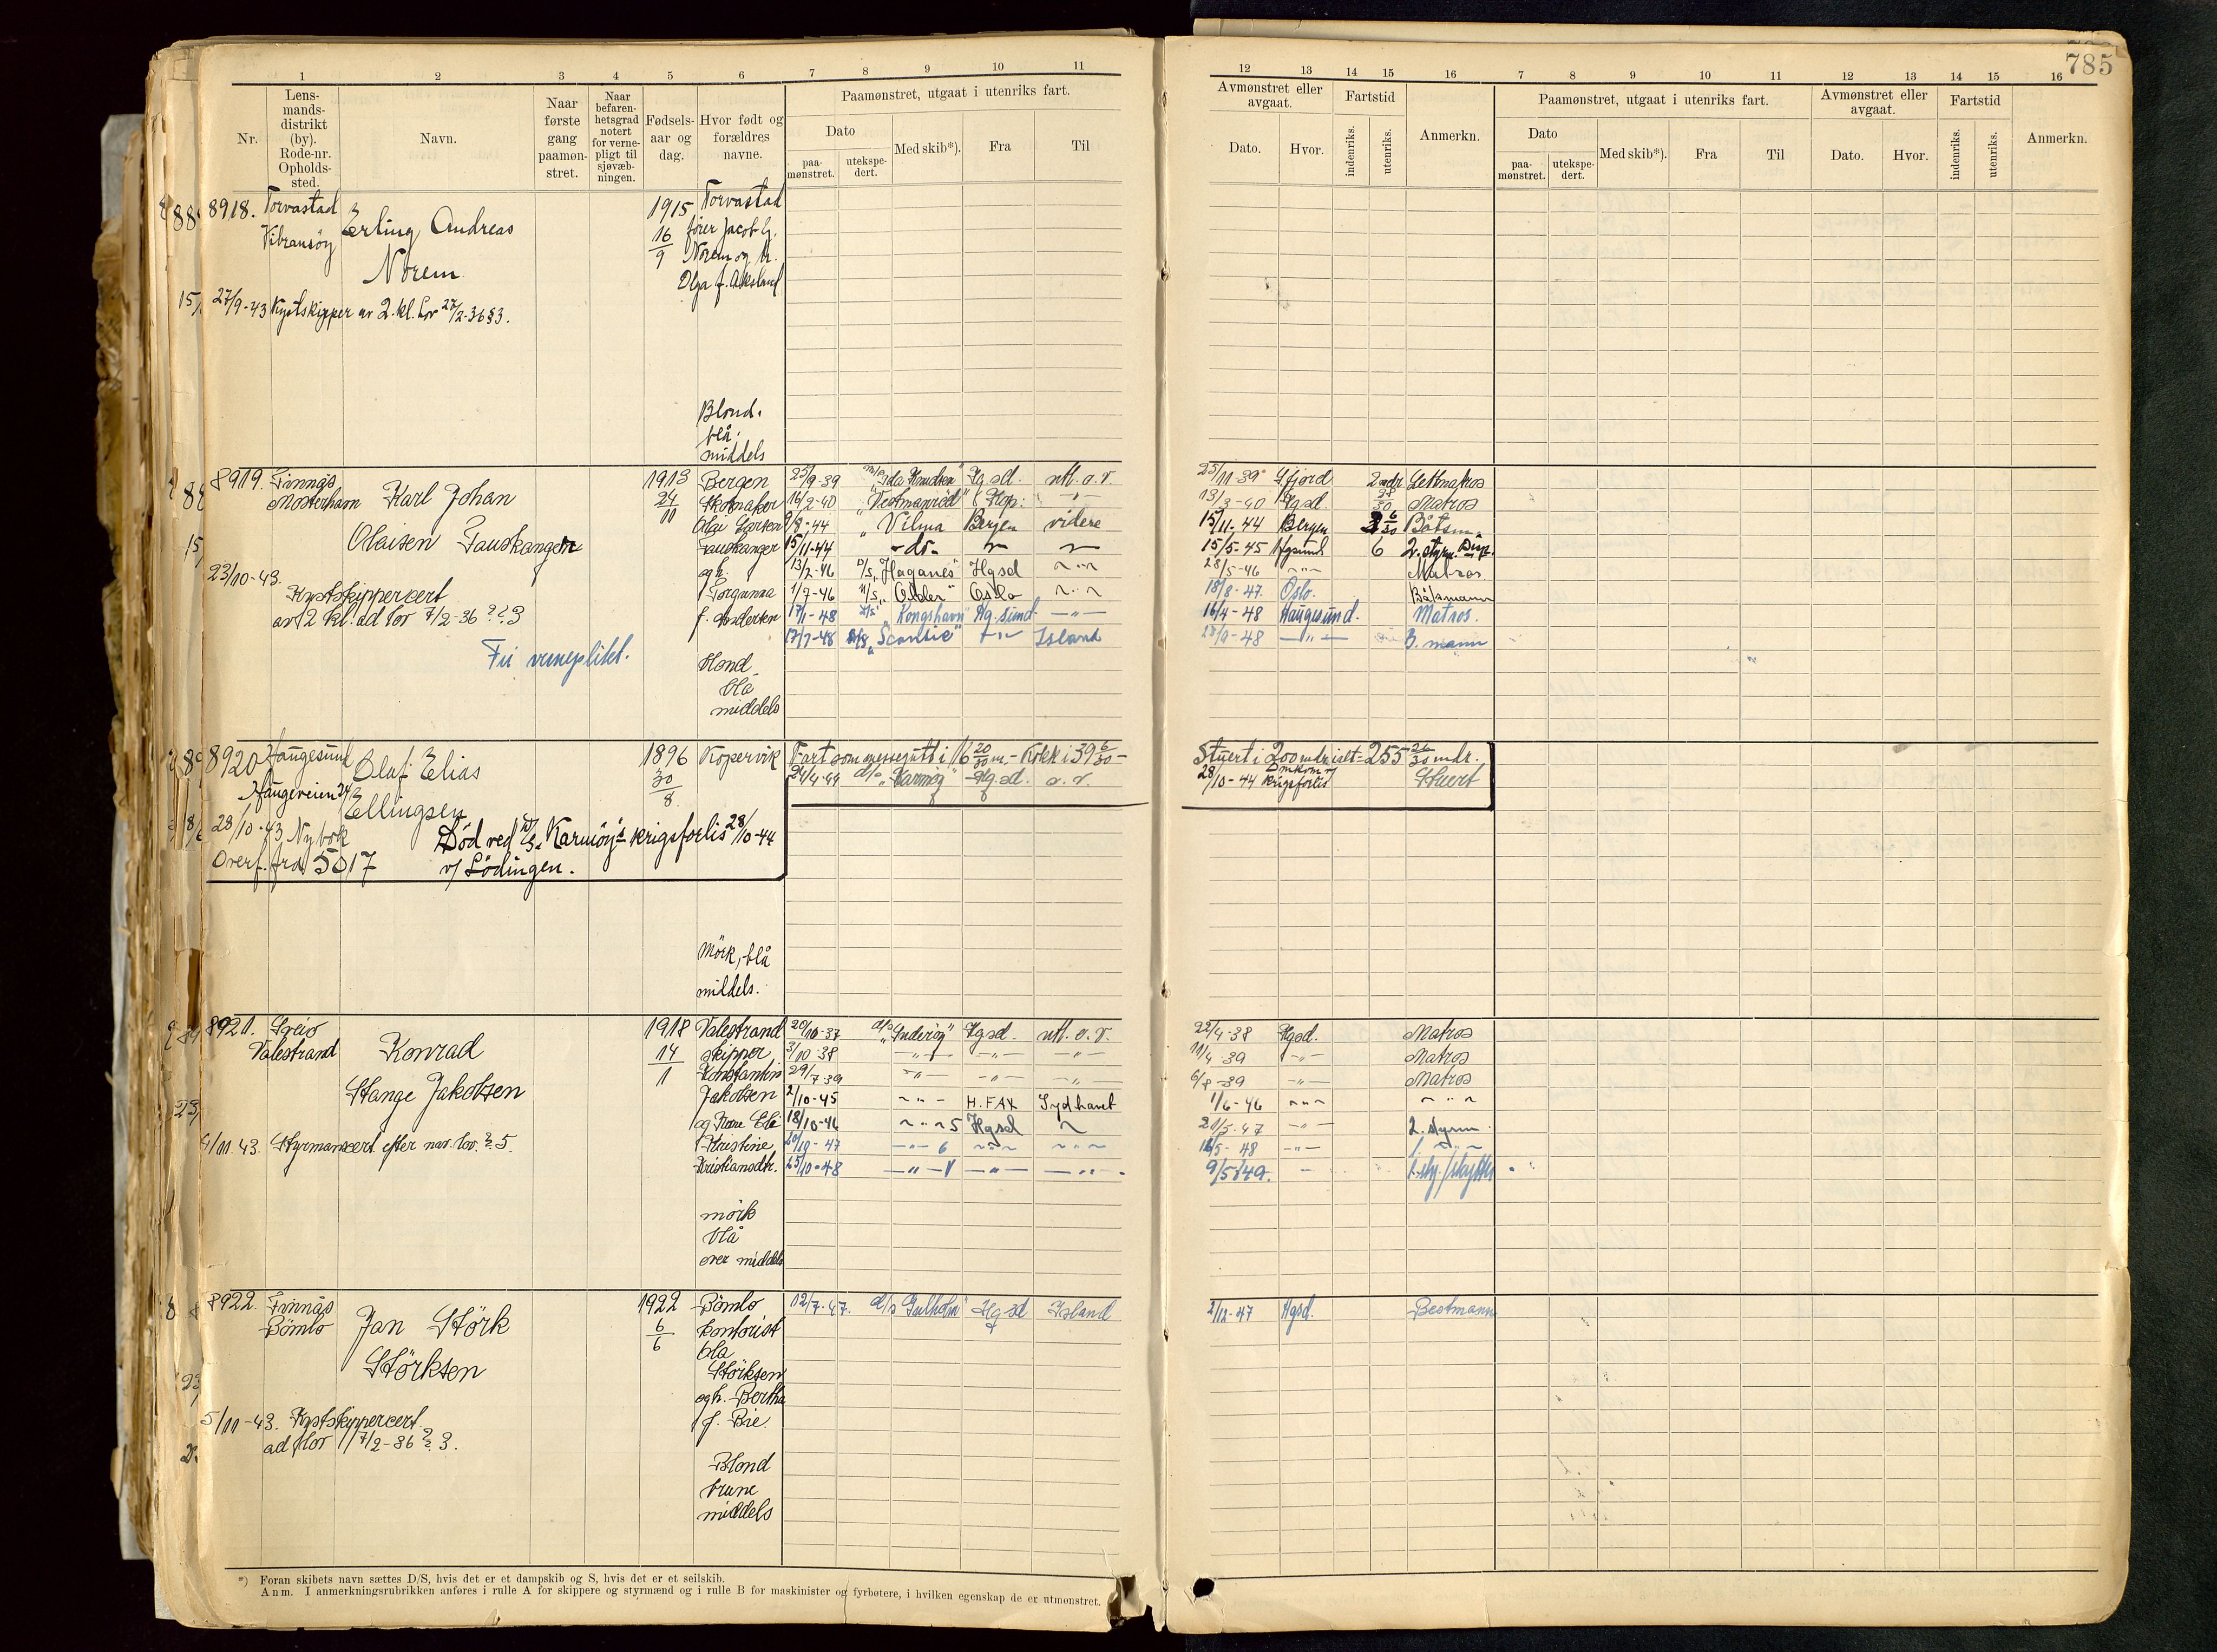 785
1 2 3 4 5 6 7 8 9 10 11
12 13 14 15 16 7 8 9 10 11 12 13 14 15 16
Nr.
Lens-
mands-
distrikt
(by).
Rode-nr.
Opholds-
sted.
Navn.
Naar
første
gang
paamøn-
stret.
Naar
befaren-
hetsgrad
notert
for verne-
pligt til
sjøvæb-
ningen.
Fødsels-
aar og
dag.
Hvor født og
forældres
navne.
Paamønstret, utgaat i utenriks fart.
Dato
paa-
mønstret.
utekspe-
dert.
Med skib*).
Fra
Til
Avmønstret eller
avgaat.
Dato.
Hvor.
Fartstid
indenriks.
utenriks.
Anmerkn.
Paamønstret, utgaat i utenriks fart.
Dato
paa-
mønstret.
utekspe-
dert.
Med skib*).
Fra
Til
Avmønstret eller
avgaat.
Dato.
Hvor.
Fartstid
indenriks.
utenriks.
Anmerkn.
8918. Torvastad
Vibransöy
Erling Andreas
Norem
1915
16/9
Torvastad
fører Jacob G.
Norem og h.
Olga f. Aksland
27/9-43 Kystskipper av 2. kl. Lov 27/2-36 § 3.
Blond.
blå.
middels
8919. Finnås
Mosterhavn
Karl Johan
Olaisen Fauskanger
1913
24/11
Bergen
skomaker
Olai Larsen
Fauskanger
og h.
Torgunna
f. Andersen
23/10-43.
Kystskippercert
av 2 kl. ad lov 7/2-36 § 3
Fri verneplikt.
blond
blå
middels
25/9-39 m/s "Ida Knudsen" Hgsd. utl. o.v. 25/11-39 Gfjord 2 mdr. Lettmatros
16/2-40 "Vestmanrød" Kop. -"- 13/3-40 Hgsd 28/30 Matros
9/8-44 "Vilma Bergen videre 15/11-44 Bergen 3 6/30 Båtsm.
15/11-44 -do- -"- -"- 15/5-45 Hgsund 6 2. styrm. Disp.
13/2-46 D/S "Haganes" Hgsd -"- 28/5-46 -"- Matros.
1/7-46 M/S "Older" Oslo -"- 18/8-47. Oslo. Båtsmann
17/1-48 "Kongshavn" Hg.sund. -"- 16/4-48 Haugesund. Matros.
17/7-48 "Scantic" -"- Island 28/9-48 -"- 3. mann
8920 Haugesund
Haugeveien 24
Olaf Elias
Ellingsen
1896
30/8.
Kopervik
Fart som messegutt i 16 20/30 m. - Kokk i 39 6/30 -
Stuert i 200 mdr. ialt = 255 26/30 mdr.
24/4-44 d/s "Karmöy" Hg.sd. o.v.
28/10-44 Omkom v/ krigsforlis Stuert
28/10-43 Ny bok
Overf. fra 5017
Död ved D/S "Karmöy"s krigsforlis 28/10-44
v/ Lödingen.
Mörk, blå
middels.
8921. Sveio
Valestrand
Konrad
Stange Jakobsen
1918
14/1
Valestrand
skipper
Konstantin
Jakobsen
og
Kristine
Kristiansdtr.
9/11 43. Styrmanscert. efter nav. lov. § 5.
mörk
blå
over middels
20/10-37 d/s "Inderöy" Hgsd. utl. o.v. 22/4-38 Hgsd. Matros
3/10 38 -"- -"- -"- 11/4-39 -"- Matros
29/7 39 -"- -"- -"- 6/8-39 -"- Matros
2/10-45 -"- H.FAX Sydhavet 1/6-46 -"- -"-
18/10-46 -"- 5 Hgsd -"- 21/5-47 -"- 2. styrm.
20/10-47 -"- 6 -"- -"- 18/5-48 -"- 1. -"-
25/10-48 -"- -"- -"- 9/5-49. - 1. sty./skytter
8922. Finnås
Bömlo
Jan Störk
Störksen
1922
6/6
Bömlo
kontorist
Ola
Störksen
og h. Bertha
f. Bie
12/7-47. d/s "Gulholm" Hgsd Island 2/11-47 Hgsd. Bestmann
5/11-43. Kystskippercert.
ad lov 17/2-36 § 3.
Blond
brune
middels
*) Foran skibets navn sættes D/S, hvis det er et dampskib og S, hvis det er et seilskib.
Anm. I anmerkningsrubrikken anføres i rulle A for skippere og styrmænd og i rulle B for maskinister og fyrbøtere, i hvilken egenskap de er utmønstret.